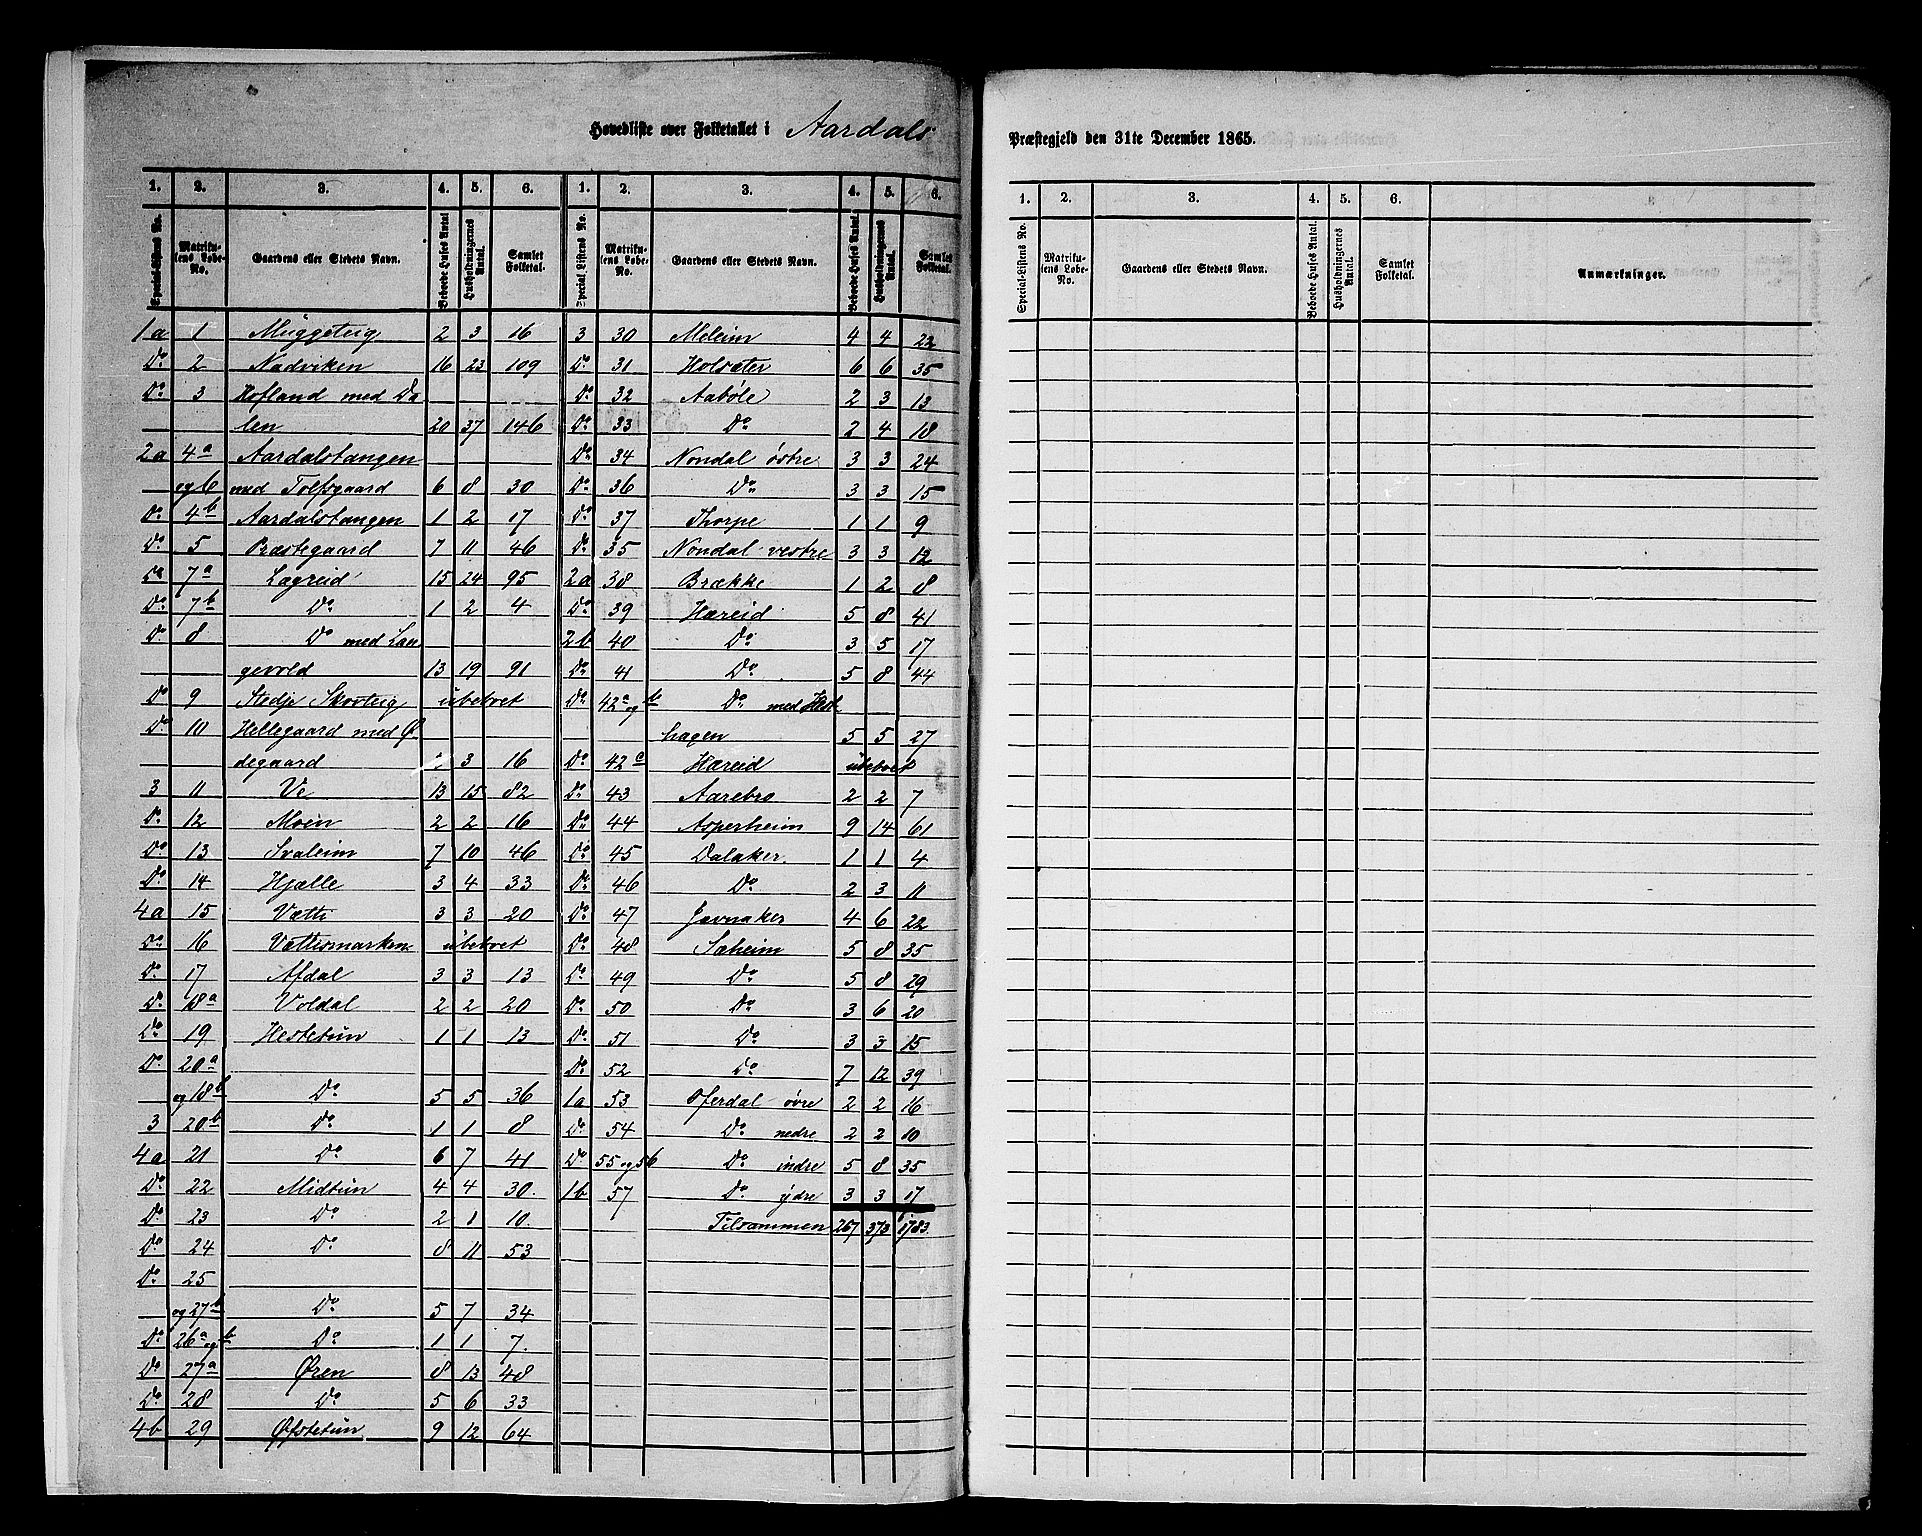 Hovedliste over Folketallet i Aardals
1. 2. 3. 4. 5. 6.
Special-Listens No. Matrikulens Løbe-No. Gaardens eller Stedets Navn. Beboede Huses Antal Husholdningernes Antal. Samlet Folketal.
1a 1 Muggeteig 2 3 16
Do 2 Nadviken 16 23 109
Do 3 Hofland med Da
len 20 37 146
2a 4a Aardalstangen
og 6 med Tolfsgaard 6 8 30
Do 4b Aardalstangen 1 2 17
Do 5 Præstegaard 7 11 46
Do 7a Lægreid 15 24 95
Do 7b Do 1 2 4
Do 8 Do med Lan
gevold 13 19 91
Do 9 Stedje Skovteig ubeboet
Do 10 Hellegaard med Ø
degaard 3 16
3 11 Ve 13 15 82
Do 12 Moen 2 2 16
Do 13 Svaleim 7 10 46
Do 14 Hjælle 3 4 33
4a 15 Vætti 3 3 20
Do 16 Vættismarken ubeboet
Do 17 Afdal 3 3 13
Do 18a Voldal 2 2 20
Do 19 Hestetun 1 1 13
Do 20a
og 18b Do 5 5 36
3 20b Do 1 1 8
4a 21 Do 6 7 41
Do 22 Midtun 4 4 30.
Do 23 Do 2 1 10.
Do 24 Do 8 11 53
Do 25
og 27b Do 5 7 34
Do 26a og b Do 1 1 7.
Do 27a Øren 8 13 48
Do 28 Do 5 6 33
4b 29 Øfstetun 9 12 64
1. 2. 3. 4. 5. 6.
Special-Listens No. Matrikulens Løbe-No. Gaardens eller Stedets Navn. Beboede Huses Antal. Husholdningernes Antal. Samlet Folketal.
3 30 Meleim 4 4 22
Do 31 Holsæter 6 6 35
Do 32 Aabøle 2 3 13
Do 33 Do 2 4 18
Do 34 Nondal østre 3 3 24
Do 36 Do 3 3 15
Do 37 Thorpe 1 1 9
Do 35 Nondal vestre 3 3 12
2a 38 Brække 1 2 8
Do 39 Hæreid 5 8 41
2b 40 Do 3 5 17
Do 41 Do 5 8 44
Do 42a og b Do med Hest
hagen 5 5 27
Do 42c Hæreid ubeboet
Do 43 Aarebro 2 2 7
Do 44 Asperheim 9 14 61
Do 45 Dalaker 1 1 4
Do 46 Do 2 3 11
Do 47 Jevnaker 4 6 22
Do 48 Sæheim 5 8 35
Do 49 Do 5 8 29
Do 50 Do 3 6 20
Do 51 Do 3 3 15
Do 52 Do 7 12 39
1a 53 Oferdal øvre 2 2 16
Do 54 Do nedre 2 2 10
Do 55 og 56 Do indre 5 8 35
1b 57 Do ydre 3 3 17
Tilsammen 267 373 1783.
Præstegjeld den 31te December 1865.
1. 2. 3. 4. 5. 6.
Special-Listens No. Matrikulens Løbe-No. Gaardens eller Stedets Navn. Beboede Huses Antal. Husholdningernes Antal. Samlet Folketal. Anmærkninger.